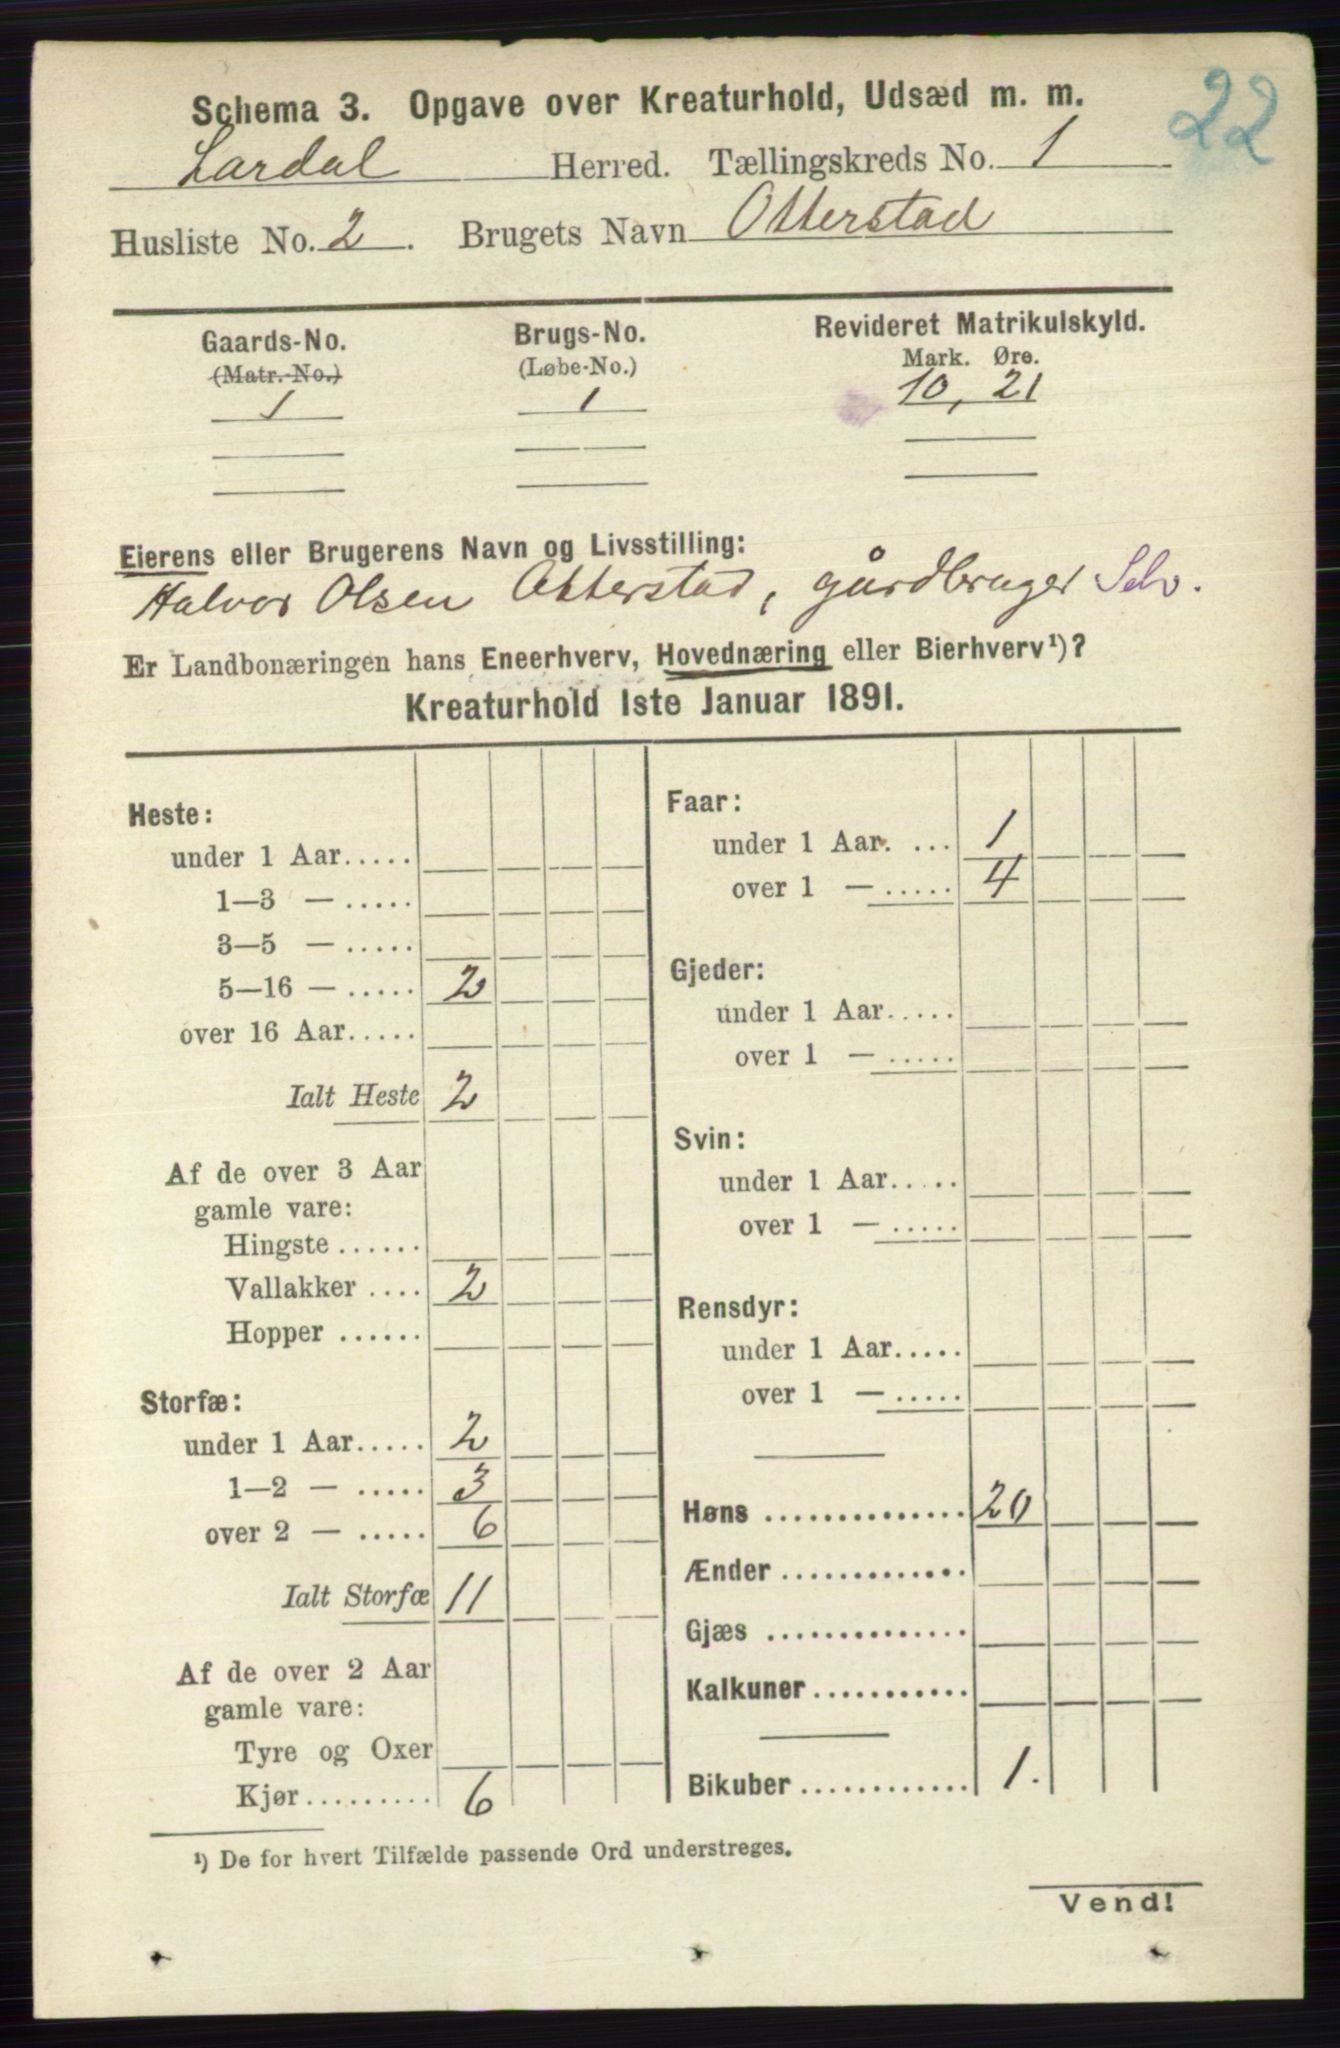 22
Schema 3. Opgave over Kreaturhold, Udsæd m. m.
Lardal Herred. Tællingskreds No. 1
Husliste No. 2. Brugets Navn Otterstad
Gaards-No. Brugs-No. Revideret Matrikulskyld.
(Matr.-No.) (Løbe-No.) Mark. Øre.
1 1 10, 21
Eierens eller Brugerens Navn og Livsstilling:
Halvor Olsen Otterstad, gårdbruger Selv.
Er Landbonæringen hans Eneerhverv, Hovednæring eller Bierhverv¹)?
Kreaturhold 1ste Januar 1891.
Heste:
under 1 Aar.....
1—3 — .....
3—5 — .....
5—16 — ..... 2
over 16 Aar.....
Ialt Heste 2
Af de over 3 Aar
gamle vare:
Hingste ......
Vallakker .... 2
Hopper ......
Storfæ:
under 1 Aar..... 2
1—2 — ..... 3
over 2 — ..... 6
Ialt Storfæ 11
Af de over 2 Aar
gamle vare:
Tyre og Oxer
Kjør......... 6
Faar:
under 1 Aar. ... 1
over 1 — ..... 4
Gjeder:
under 1 Aar.....
over 1 — .....
Svin:
under 1 Aar.....
over 1 — .....
Rensdyr:
under 1 Aar.....
over 1 — .....
Høns .............. 20
Ænder .............
Gjæs ..............
Kalkuner...........
Bikuber ............. 1.
¹) De for hvert Tilfælde passende Ord understreges.
Vend!